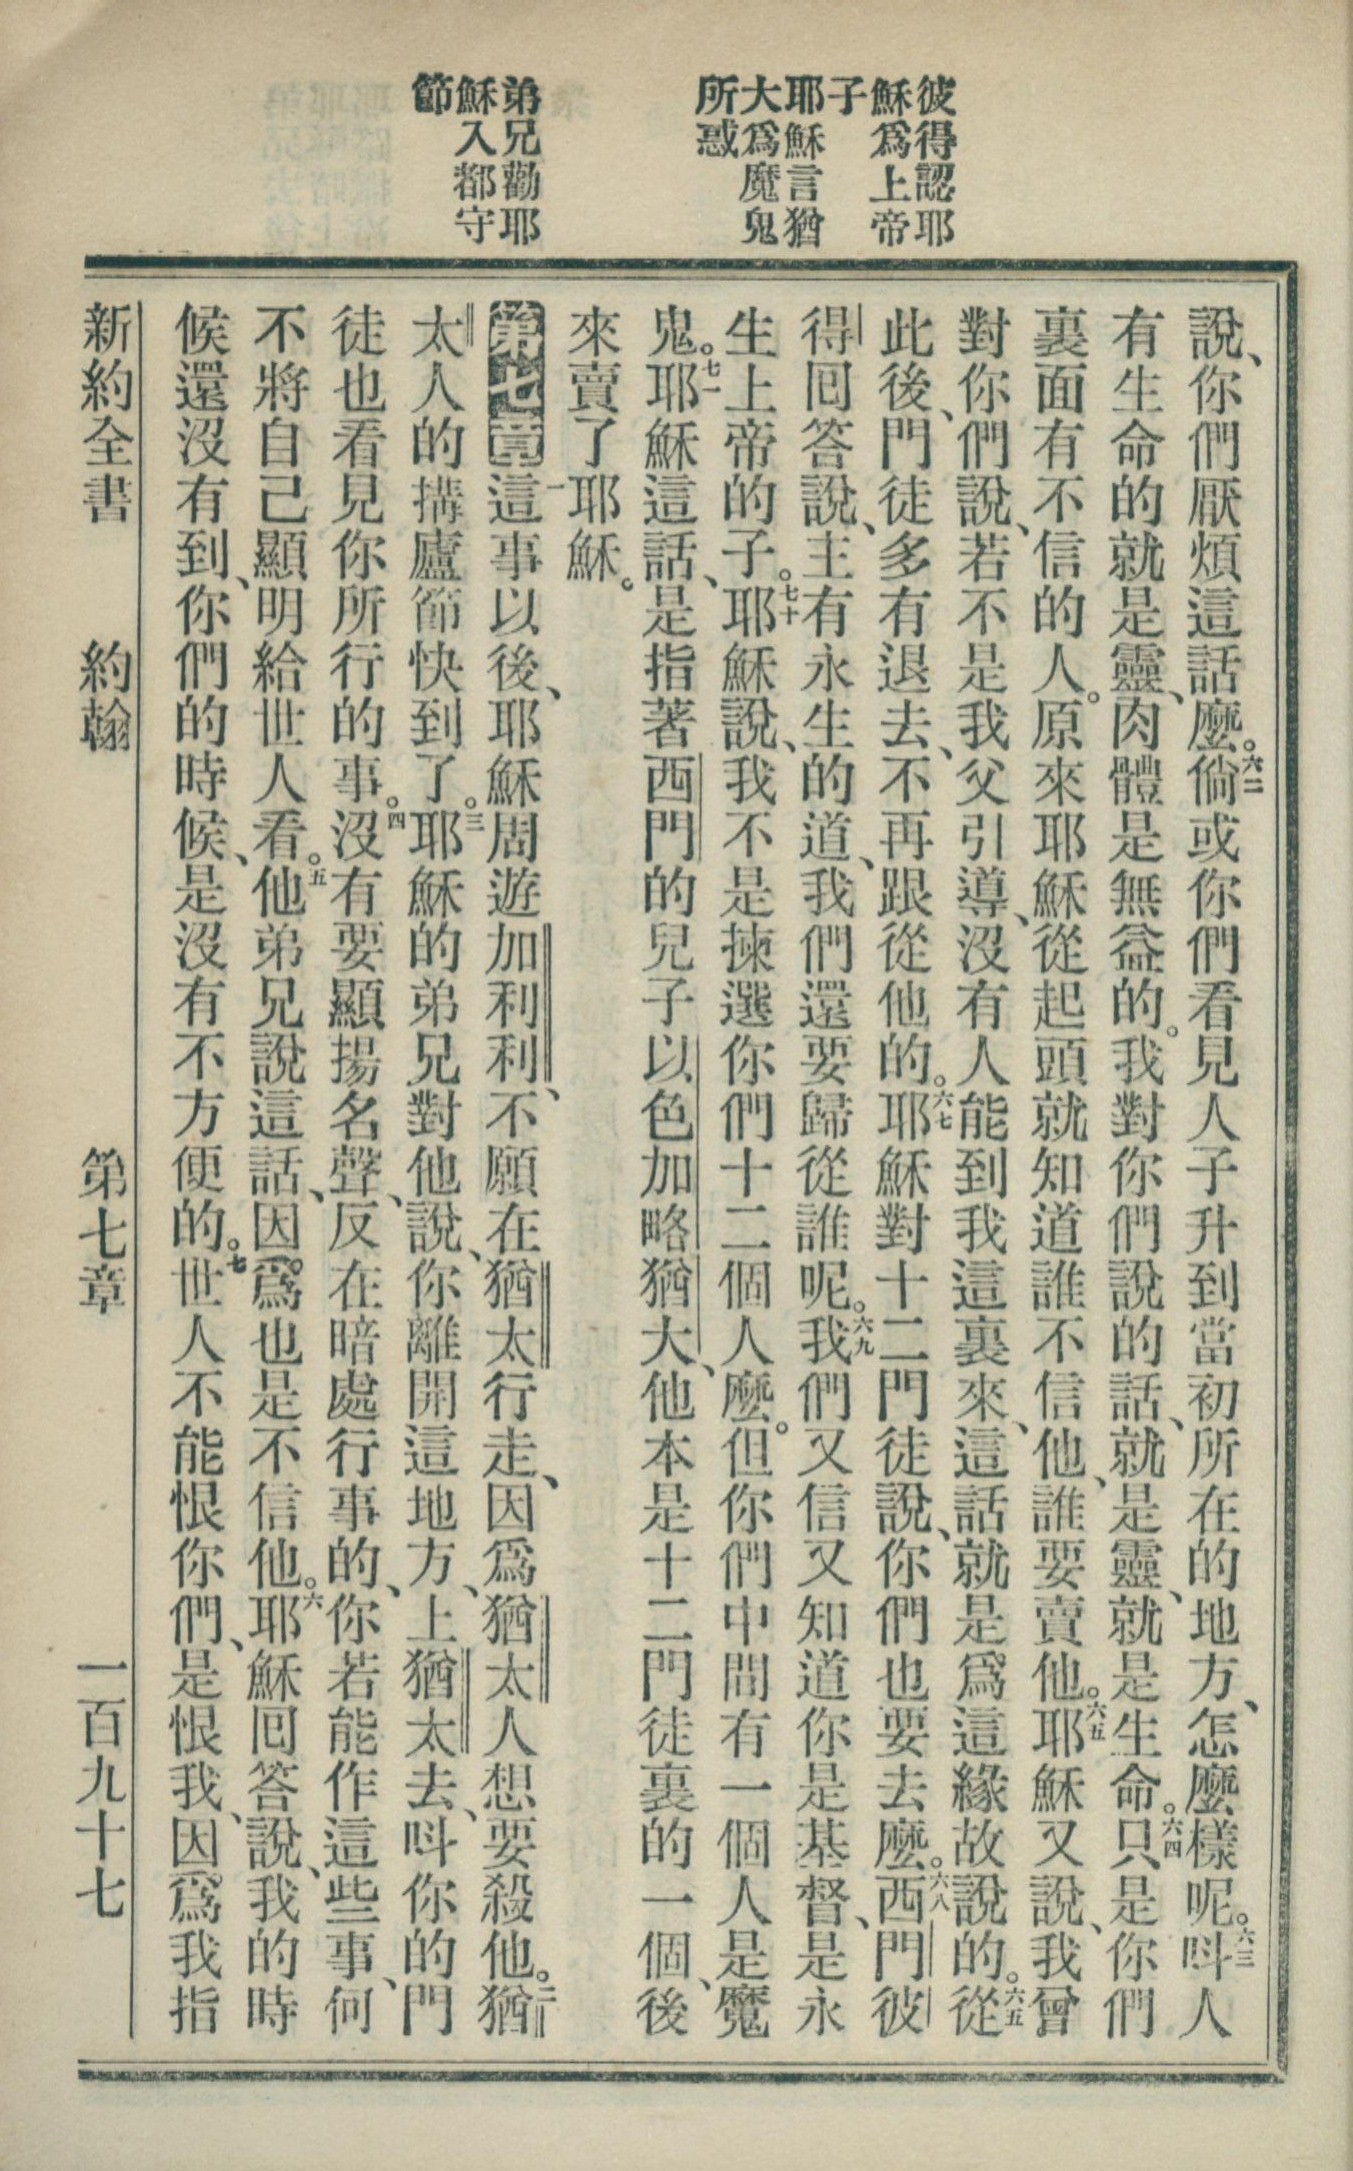 彼得認耶
穌爲上帝
子
耶穌言猶
大爲魔鬼
所惑
弟兄勸耶
穌入都守
節
說、你們厭煩這話麼。六二倘或你們看見人子升到當初所在的地方、怎麼樣呢。六三呌人
有生命的就是靈、肉體是無益的。我對你們說的話、就是靈、就是生命。六四只是你們
裏面有不信的人。原來耶穌從起頭就知道誰不信他、誰要賣他。六五耶穌又說、我曾
對你們說、若不是我父引導、沒有人能到我這裏來、這話就是爲這緣故說的。六五從
此後、門徒多有退去、不再跟從他的。六七耶穌對十二門徒說、你們也要去麼。六八西門彼
得回答說、主有永生的道、我們還要歸從誰呢。六九我們又信又知道你是基督、是永
生上帝的子。七十耶穌說、我不是揀選你們十二個人麼。但你們中間有一個人是魔
鬼。七一耶穌這話、是指著西門的兒子以色加略猶大、他本是十二門徒裏的一個、後
來賣了耶穌。
第七章一這事以後、耶穌周遊加利利、不願在猶太行走、因爲猶太人想要殺他。二猶
太人的搆廬節快到了。三耶穌的弟兄對他說、你離開這地方、上猶太去、呌你的門
徒也看見你所行的事。四沒有要顯揚名聲、反在暗處行事的、你若能作這些事、何
不將自己顯明給世人看。五他弟兄說這話、因爲也是不信他。六耶穌回答說、我的時
候還沒有到、你們的時候、是沒有不方便的。七世人不能恨你們、是恨我、因爲我指
新約全書 約翰 第七章 一百九十七